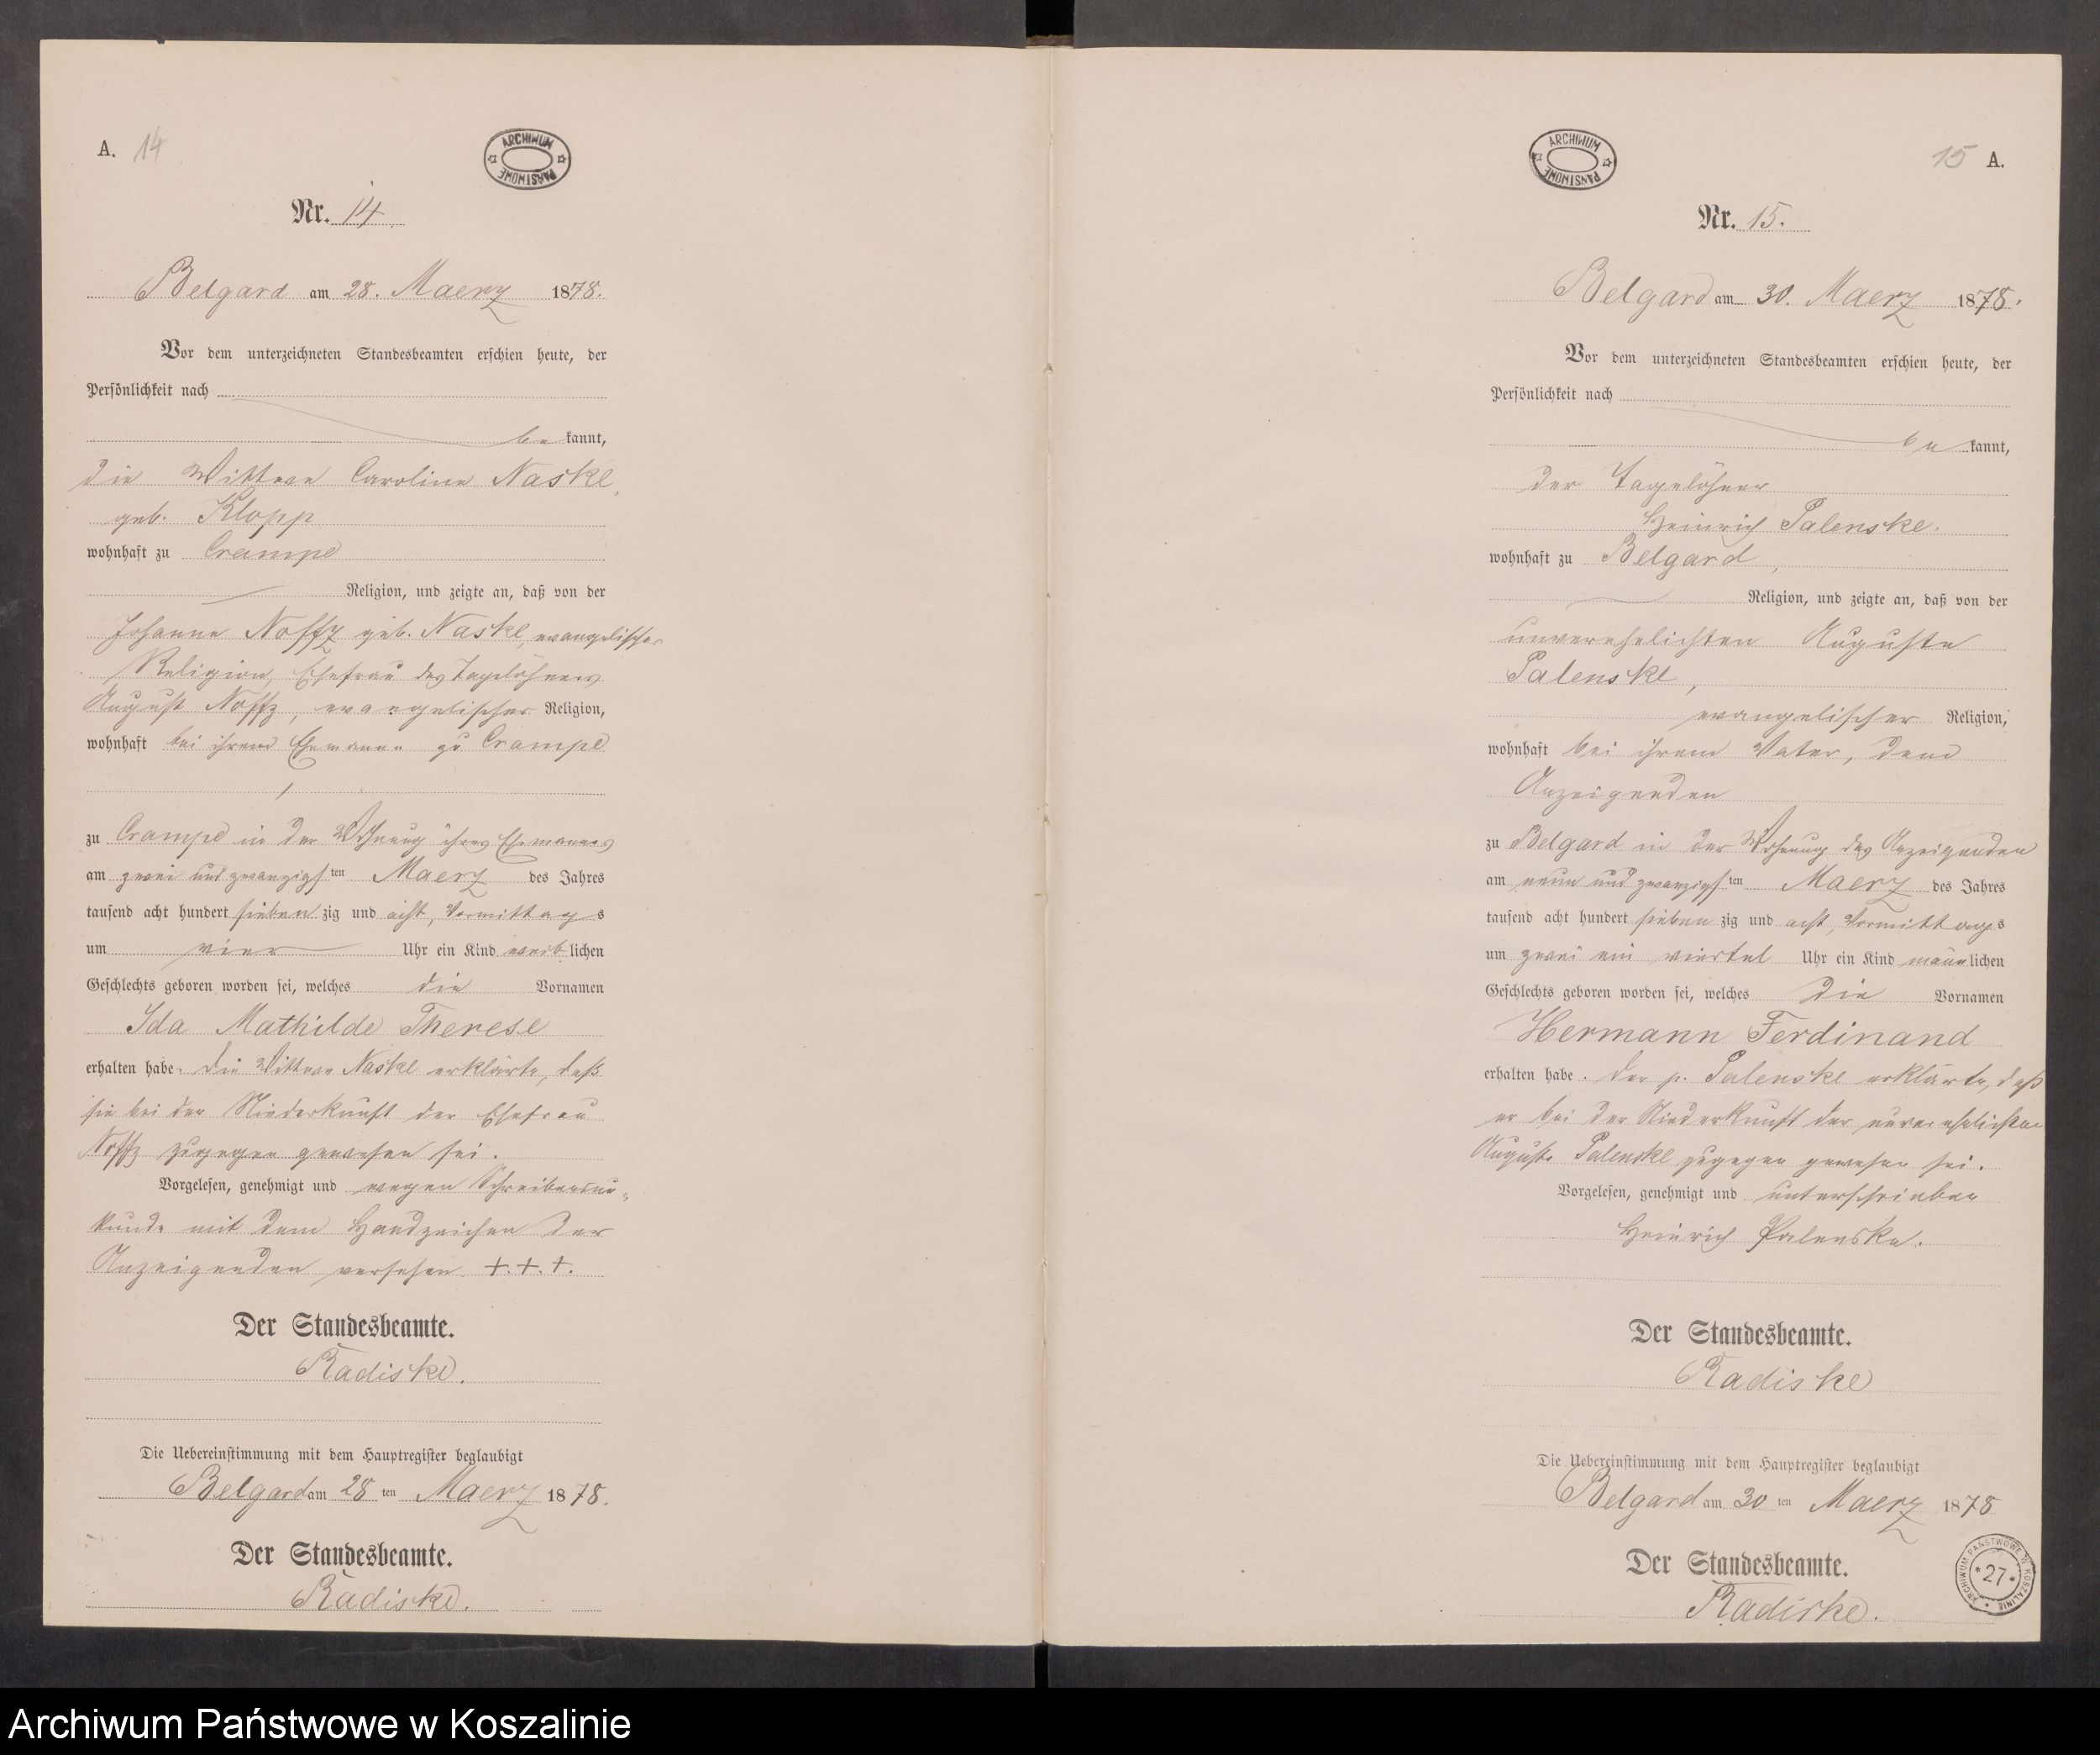 A. 14
ARCHIWUM PAŃSTWOWE
Nr. 14
Belgard am 28. Maerz 1878.
Vor dem unterzeichneten Standesbeamten erschien heute, der
Persönlichkeit nach
be kannt,
die Wittwe Caroline Naske,
geb. Klopp
wohnhaft zu Crampe
Religion, und zeigte an, daß von der
Johanne Noffz geb. Naske, evangelischer
Religion, Ehefrau des Tagelöhners
August Noffz, evangelischer Religion,
wohnhaft bei ihrem Ehemanne zu Crampe
zu Crampe in der Wohnung ihres Ehemannes
am zwei und zwanzigsten Maerz des Jahres
tausend acht hundert sieben zig und acht, Vormittags
um vier Uhr ein Kind weiblichen
Geschlechts geboren worden sei, welches die Vornamen
Ida Mathilde Therese
erhalten habe. Die Wittwe Naske erklärte, daß
sie bei der Niederkunft der Ehefrau
Noffz zugegen gewesen sei.
Vorgelesen, genehmigt und wegen Schreibensun-
kunde mit dem Handzeichen der
Anzeigenden versehen +.+.+.
Der Standesbeamte.
Radiske.
Die Uebereinstimmung mit dem Hauptregister beglaubigt
Belgard am 28 ten Maerz 1878.
Der Standesbeamte.
Radiske.
15 A.
ARCHIWUM PAŃSTWOWE
Nr. 15.
Belgard am 30. Maerz 1878.
Vor dem unterzeichneten Standesbeamten erschien heute, der
Persönlichkeit nach
be kannt,
der Tagelöhner
Heinrich Palenske.
wohnhaft zu Belgard,
Religion, und zeigte an, daß von der
unverehelichten Auguste
Palenske,
evangelischer Religion,
wohnhaft bei ihrem Vater, dem
Anzeigenden
zu Belgard in der Wohnung des Anzeigenden
am neun und zwanzigsten Maerz des Jahres
tausend acht hundert sieben zig und acht, Vormittags
um zwei ein viertel Uhr ein Kind männlichen
Geschlechts geboren worden sei, welches die Vornamen
Hermann Ferdinand
erhalten habe. Der p. Palenske erklärte, daß
er bei der Niederkunft der unverehelichten
Auguste Palenske zugegen gewesen sei.
Vorgelesen, genehmigt und unterschrieben
Heinrich Palenske.
Der Standesbeamte.
Radiske
Die Uebereinstimmung mit dem Hauptregister beglaubigt
Belgard am 30 ten Maerz 1878
Der Standesbeamte.
Radiske.
ARCHIWUM PAŃSTWOWE W KOSZALINIE
*27*
Archiwum Państwowe w Koszalinie